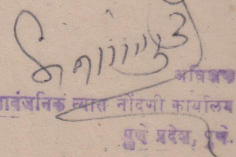 अधिक्षक
सार्वजनिक न्यास नोंदणी कार्यालय
पुणे प्रदेश, पुणे.